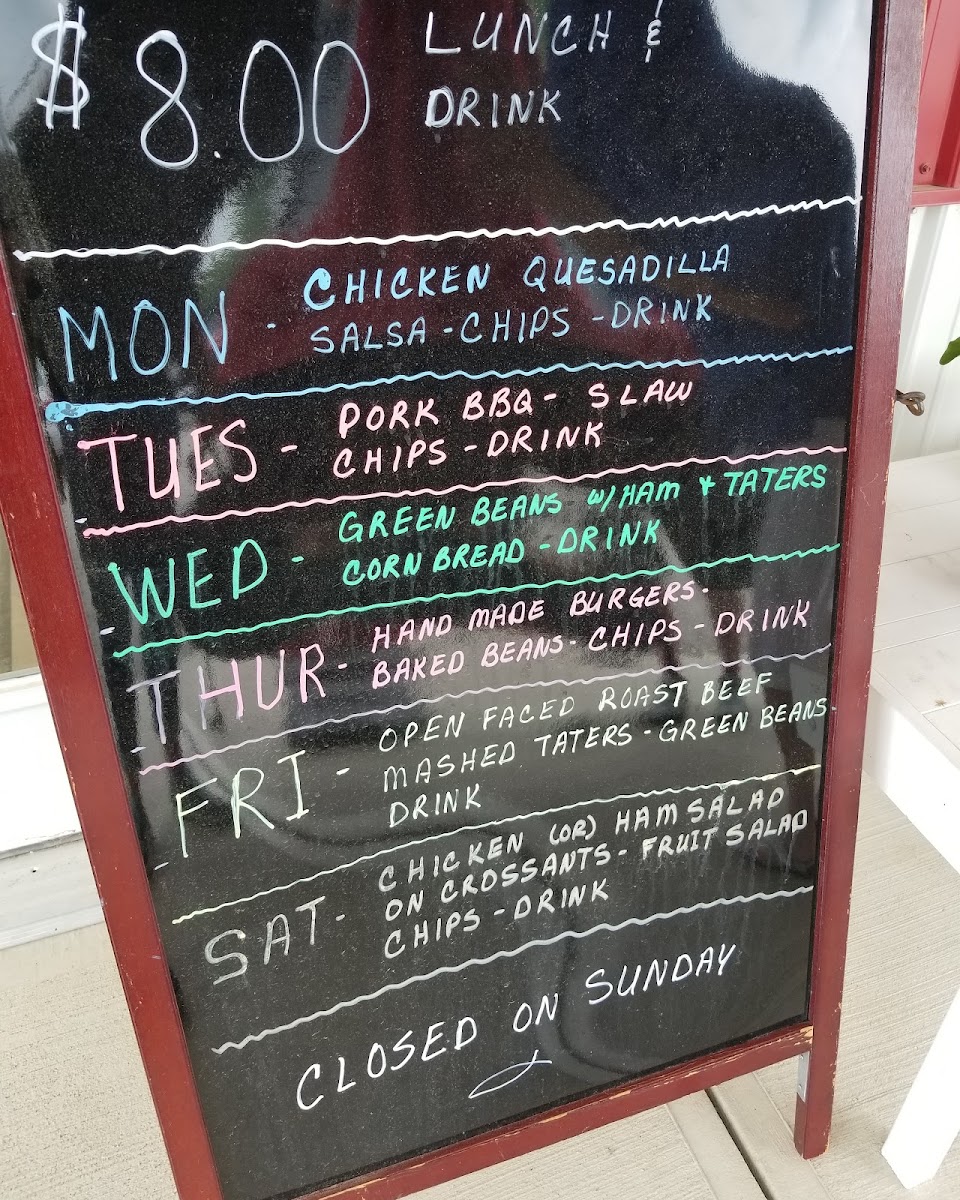 $8.00 LUNCH &
DRINK
MON - CHICKEN QUESADILLA
SALSA - CHIPS - DRINK
TUES - PORK BBQ - SLAW
CHIPS - DRINK
WED - GREEN BEANS W/HAM & TATERS
CORN BREAD - DRINK
THUR - HAND MADE BURGERS -
BAKED BEANS - CHIPS - DRINK
FRI - OPEN FACED ROAST BEEF
MASHED TATERS - GREEN BEANS -
DRINK
SAT - CHICKEN (OR) HAM SALAD
ON CROSSANTS - FRUIT SALAD
CHIPS - DRINK
CLOSED ON SUNDAY